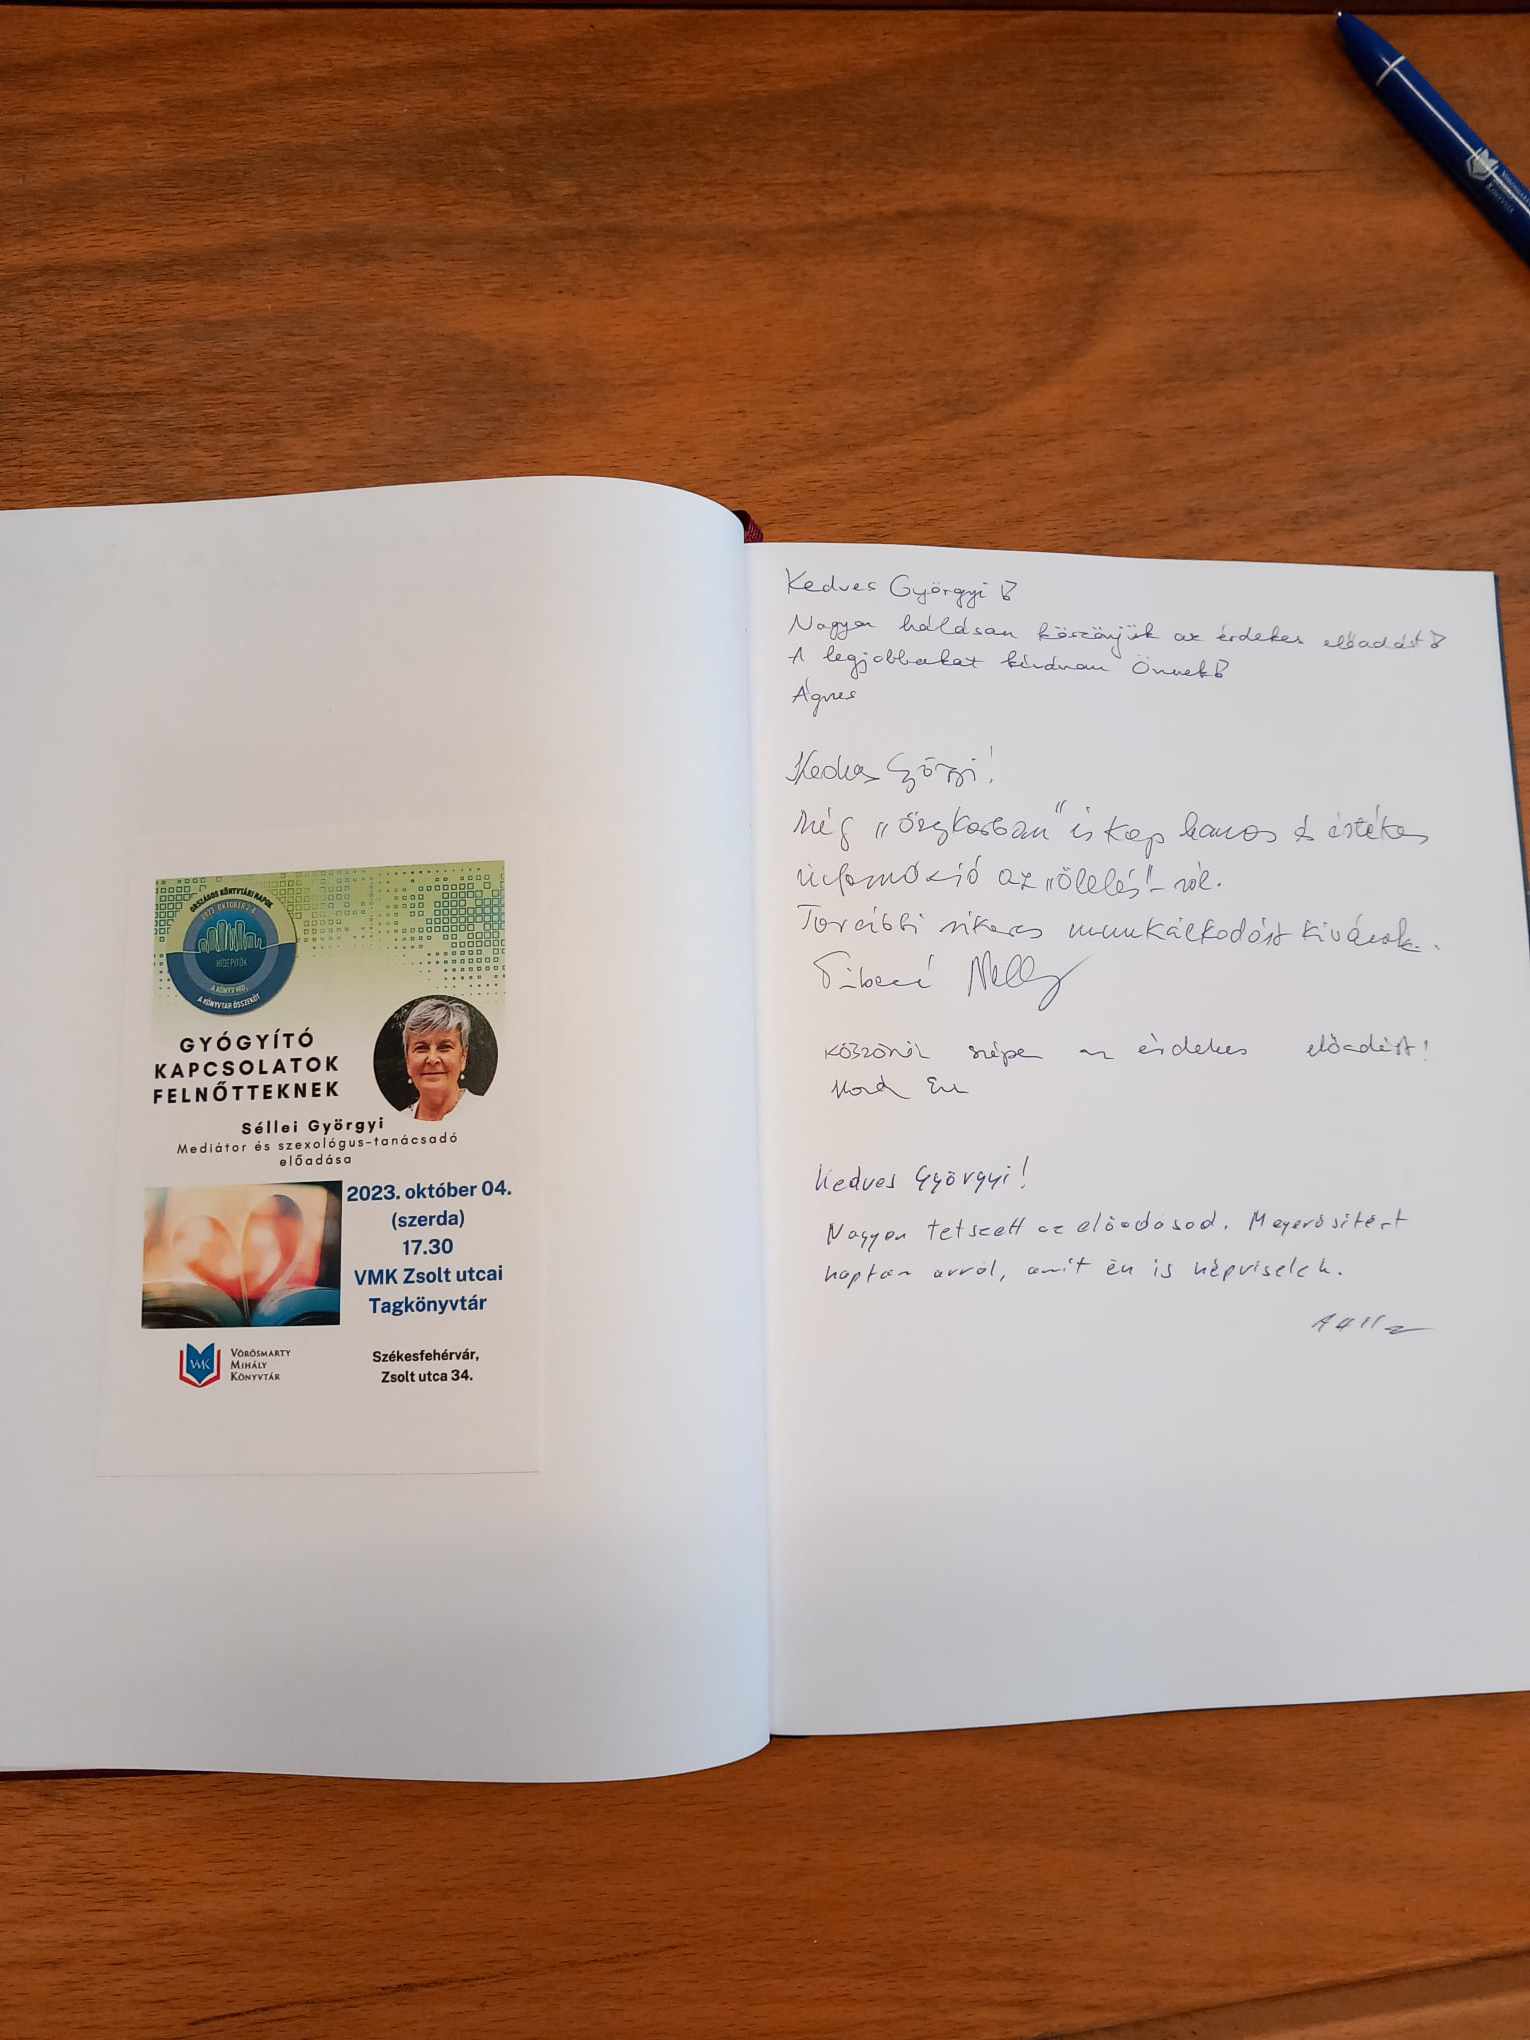 ORSZÁGOS KÖNYVTÁRI NAPOK
2023. OKTÓBER 2-8.
HÍDÉPÍTŐK
A KÖNYV VÉD,
A KÖNYVTÁR ÖSSZEKÖT
GYÓGYÍTÓ
KAPCSOLATOK
FELNŐTTEKNEK
Séllei Györgyi
Mediátor és szexológus-tanácsadó
előadása
2023. október 04.
(szerda)
17.30
VMK Zsolt utcai
Tagkönyvtár
VMK
VÖRÖSMARTY
MIHÁLY
KÖNYVTÁR
Székesfehérvár,
Zsolt utca 34.
Kedves Györgyi!
Nagyon hálásan köszönjük az érdekes előadást!
A legjobbakat kívánom Önnek!
Ágnes
Kedves Györgyi!
Még „öregkorban" is kap hasznos és értékes
információ az „ölelés"-ről.
További sikeres munkálkodást kívánok.
Nelly
Köszönöm szépen az érdekes előadást!
Kedves Györgyi!
Nagyon tetszett az előadásod. Megerősítést
kaptam arról, amit én is képviselek.
VÖRÖSMARTY
MIHÁLY
KÖNYVTÁR